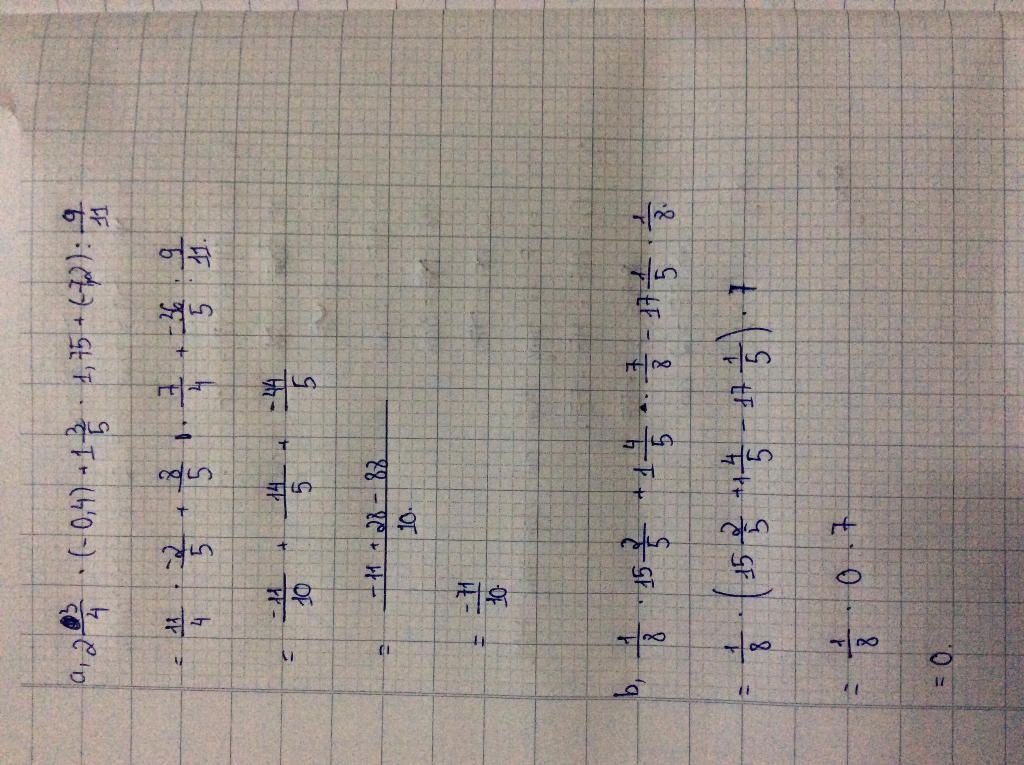 a, 2 3/4 . (-0,4) + 1 3/5 . 1,75 + (-7,2) : 9/11
= 11/4 . -2/5 + 8/5 . 7/4 + -36/5 : 9/11.
= -11/10 + 14/5 + -44/5
= -11 + 28 - 88/10.
= -71/10.
b, 1/8 . 15 2/5 + 1 4/5 . 7/8 - 17 1/5 . 1/8.
= 1/8 . (15 2/5 + 1 4/5 - 17 1/5) . 7
= 1/8 . 0 . 7
= 0.